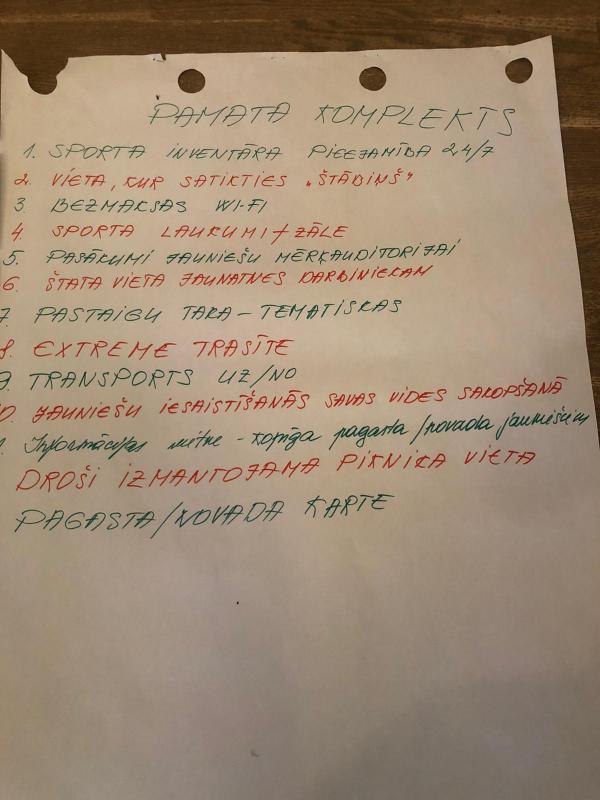 PAMATA KOMPLEKTS
1. SPORTA INVENTĀRA PIEEJAMĪBA 24/7
2. VIETA, KUR SATIKTIES „ŠTĀBIŅŠ"
3. BEZMAKSAS WI-FI
4. SPORTA LAUKUMI + ZĀLE
5. PASĀKUMI JAUNIEŠU MĒRĶAUDITORIJAI
6. ŠTATA VIETA JAUNATNES DARBINIEKAM
7. PASTAIGU TAKA - TEMATISKAS
8. EXTREME TRASĪTE
9. TRANSPORTS UZ/NO
10. JAUNIEŠU IESAISTĪŠANĀS SAVAS VIDES SAKOPŠANĀ
1. Informācijas vietne - kopīga pagasta/novada jauniešiem
DROŠI IZMANTOJAMA PIKNIKA VIETA
PAGASTA/NOVADA KARTE